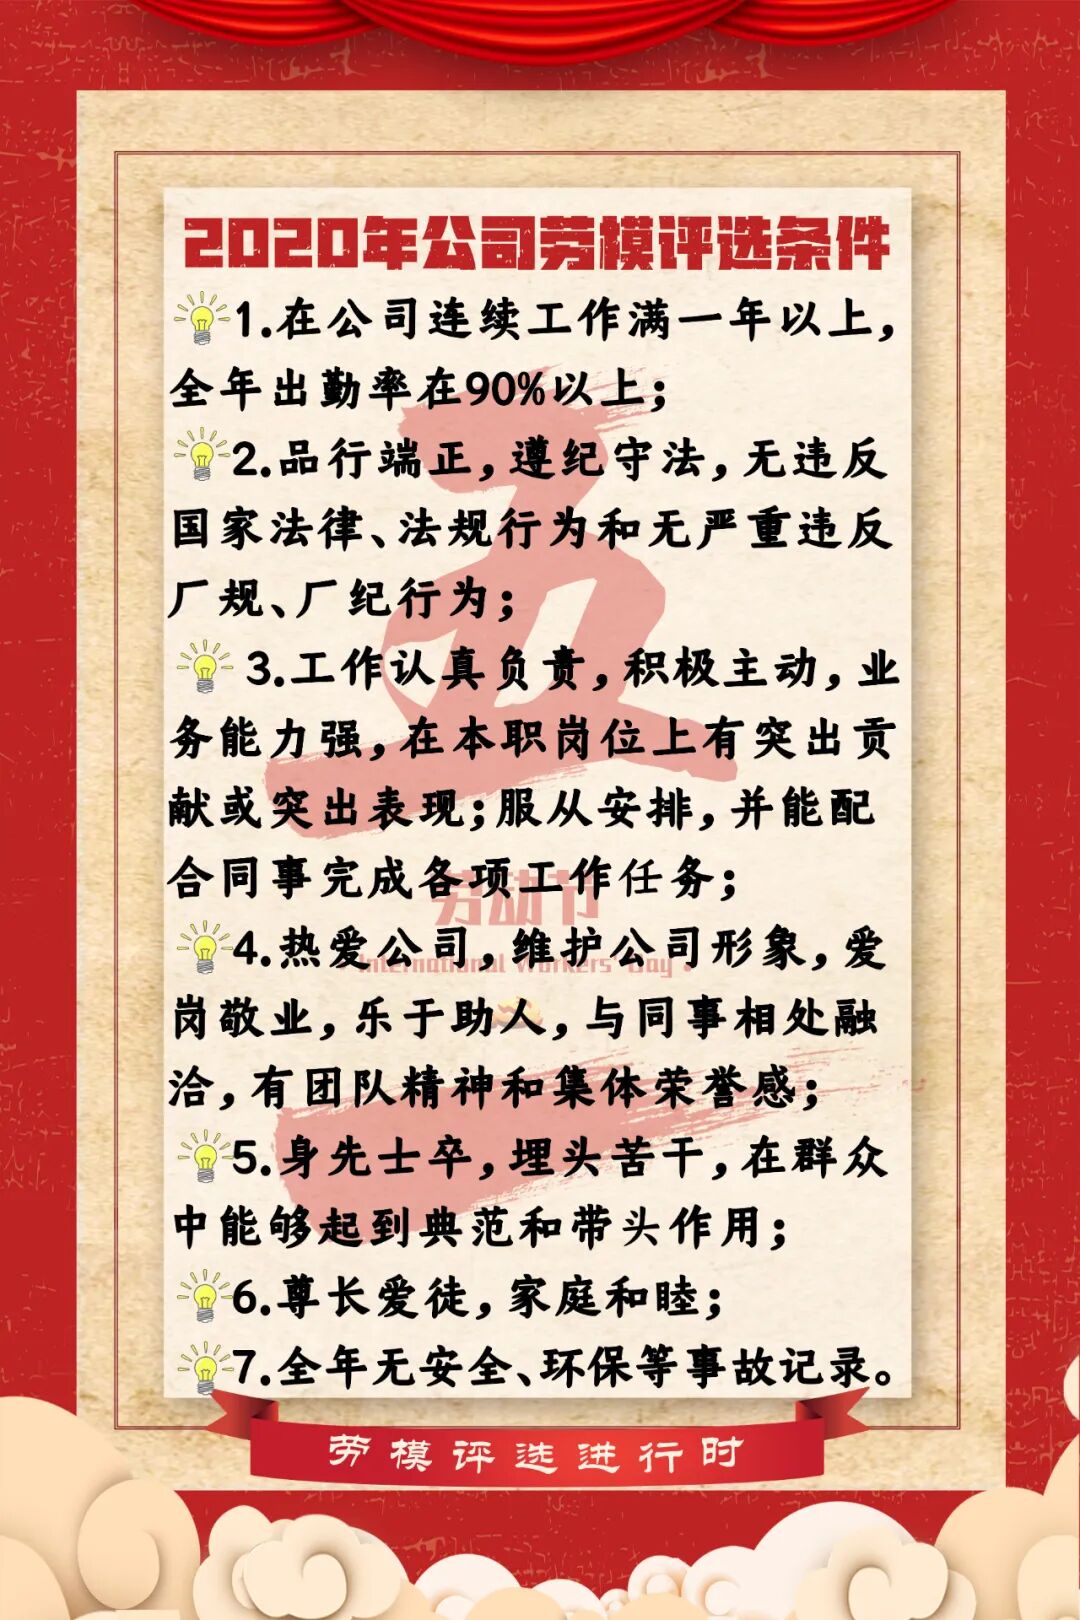 2020年公司劳模评选条件
1.在公司连续工作满一年以上,
全年出勤率在90%以上;
2.品行端正,遵纪守法,无违反
国家法律、法规行为和无严重违反
厂规、厂纪行为;
3.工作认真负责,积极主动,业
务能力强,在本职岗位上有突出贡
献或突出表现;服从安排,并能配
合同事完成各项工作任务;
4.热爱公司,维护公司形象,爱
岗敬业,乐于助人,与同事相处融
洽,有团队精神和集体荣誉感;
5.身先士卒,埋头苦干,在群众
中能够起到典范和带头作用;
6.尊长爱徒,家庭和睦;
7.全年无安全、环保等事故记录。
五一
劳动节
International Workers' Day
劳模评选进行时